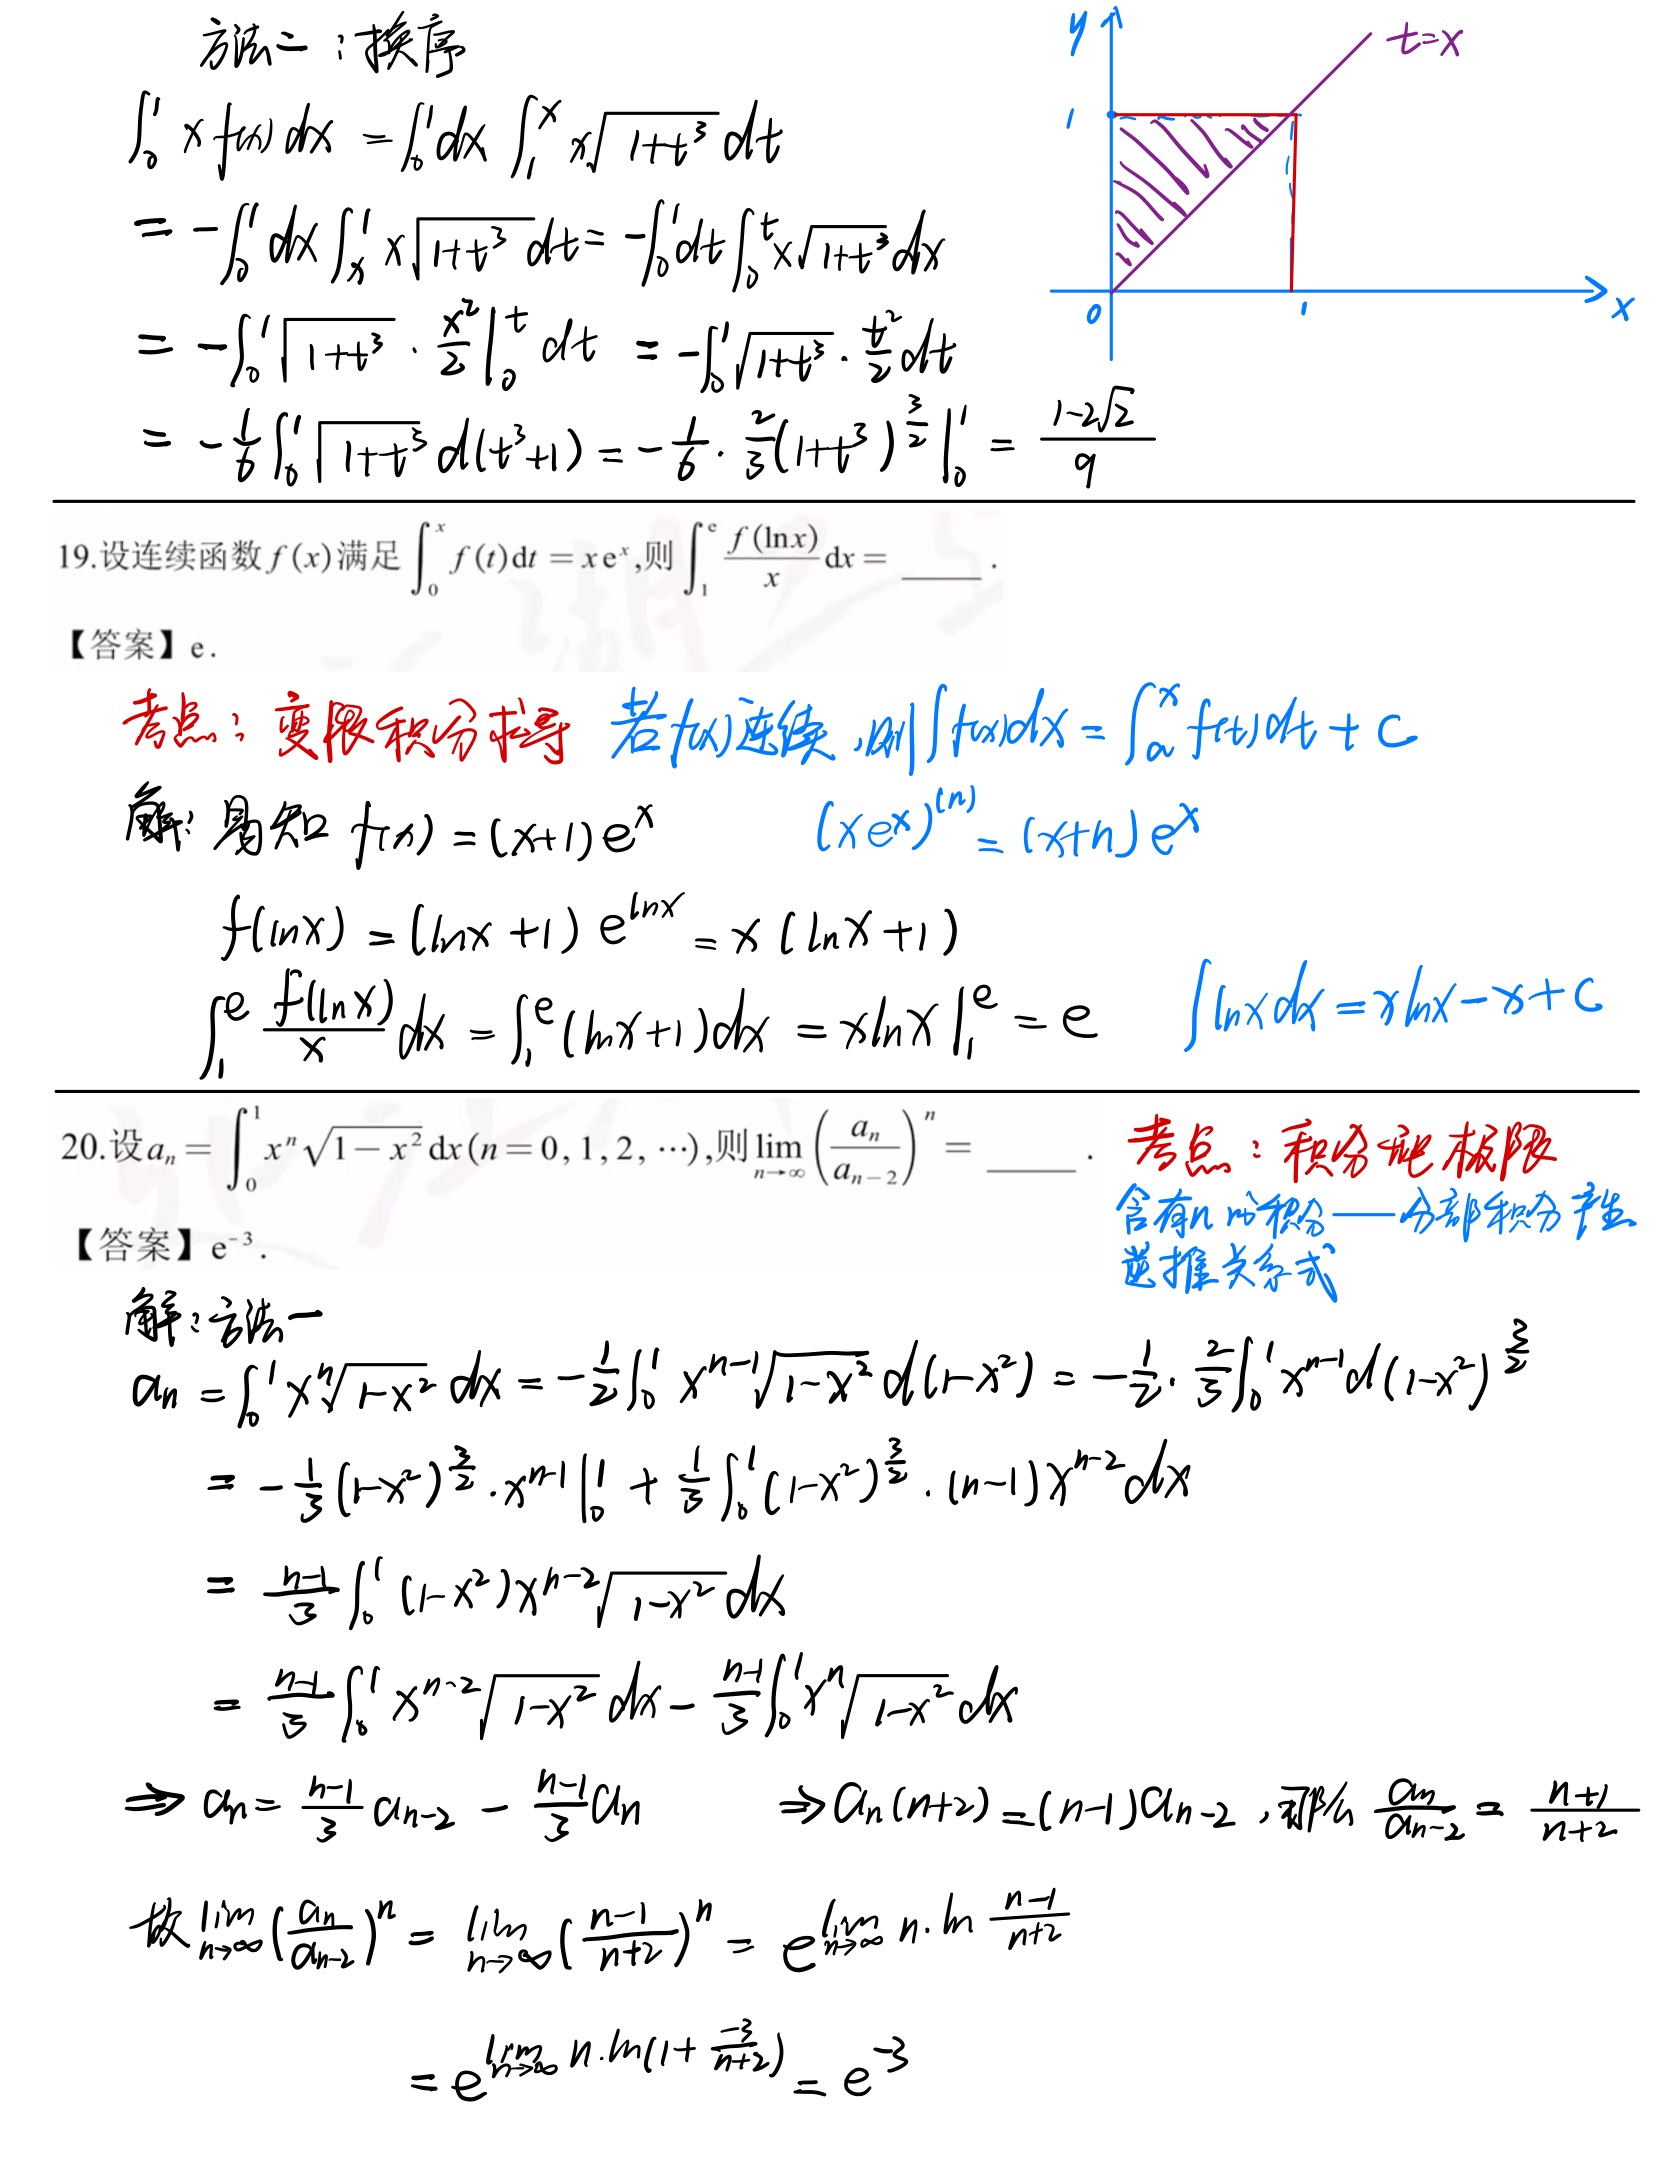 方法二：换序
y
t=x
1
0
1
x
∫₀¹ x f(x) dx = ∫₀¹ dx ∫₁ˣ x√(1+t³) dt
= -∫₀¹ dx ∫ₓ¹ x√(1+t³) dt = -∫₀¹ dt ∫₀ᵗ x√(1+t³) dx
= -∫₀¹ √(1+t³) · x²/2 |₀ᵗ dt = -∫₀¹ √(1+t³) · t²/2 dt
= -1/6 ∫₀¹ √(1+t³) d(t³+1) = -1/6 · 2/3 (1+t³)^(3/2) |₀¹ = (1-2√2)/9
19.设连续函数 f(x)满足 ∫₀ˣ f(t)dt = x eˣ,则 ∫₁ᵉ f(ln x)/x dx = ____ .
【答案】e.
考点：变限积分求导 若f(x)连续,则∫f(x)dx = ∫ₐˣ f(t)dt + C
解：易知 f(x) = (x+1)eˣ (xeˣ)⁽ⁿ⁾ = (x+n)eˣ
f(lnx) = (lnx+1) e^(lnx) = x(lnx+1)
∫₁ᵉ f(lnx)/x dx = ∫₁ᵉ (lnx+1)dx = xlnx |₁ᵉ = e ∫lnx dx = xlnx - x + C
20.设 aₙ = ∫₀¹ xⁿ √(1-x²) dx(n=0,1,2,⋯),则 lim_(n→∞) (aₙ/aₙ₋₂)ⁿ = ____ .
考点：积分班极限
含有n的积分——分部积分产生
递推关系式
【答案】e⁻³.
解：方法一
aₙ = ∫₀¹ xⁿ√(1-x²) dx = -1/2 ∫₀¹ xⁿ⁻¹√(1-x²) d(1-x²) = -1/2 · 2/3 ∫₀¹ xⁿ⁻¹ d(1-x²)^(3/2)
= -1/3 (1-x²)^(3/2) · xⁿ⁻¹ |₀¹ + 1/3 ∫₀¹ (1-x²)^(3/2) · (n-1)xⁿ⁻² dx
= (n-1)/3 ∫₀¹ (1-x²)xⁿ⁻²√(1-x²) dx
= (n-1)/3 ∫₀¹ xⁿ⁻²√(1-x²) dx - (n-1)/3 ∫₀¹ xⁿ√(1-x²) dx
⇒ aₙ = (n-1)/3 aₙ₋₂ - (n-1)/3 aₙ ⇒ aₙ(n+2) = (n-1)aₙ₋₂ ,那么 aₙ/aₙ₋₂ = (n+1)/(n+2)
故 lim_(n→∞) (aₙ/aₙ₋₂)ⁿ = lim_(n→∞) ((n-1)/(n+2))ⁿ = e^(lim_(n→∞) n·ln (n-1)/(n+2))
= e^(lim_(n→∞) n·ln(1+ -3/(n+2))) = e⁻³